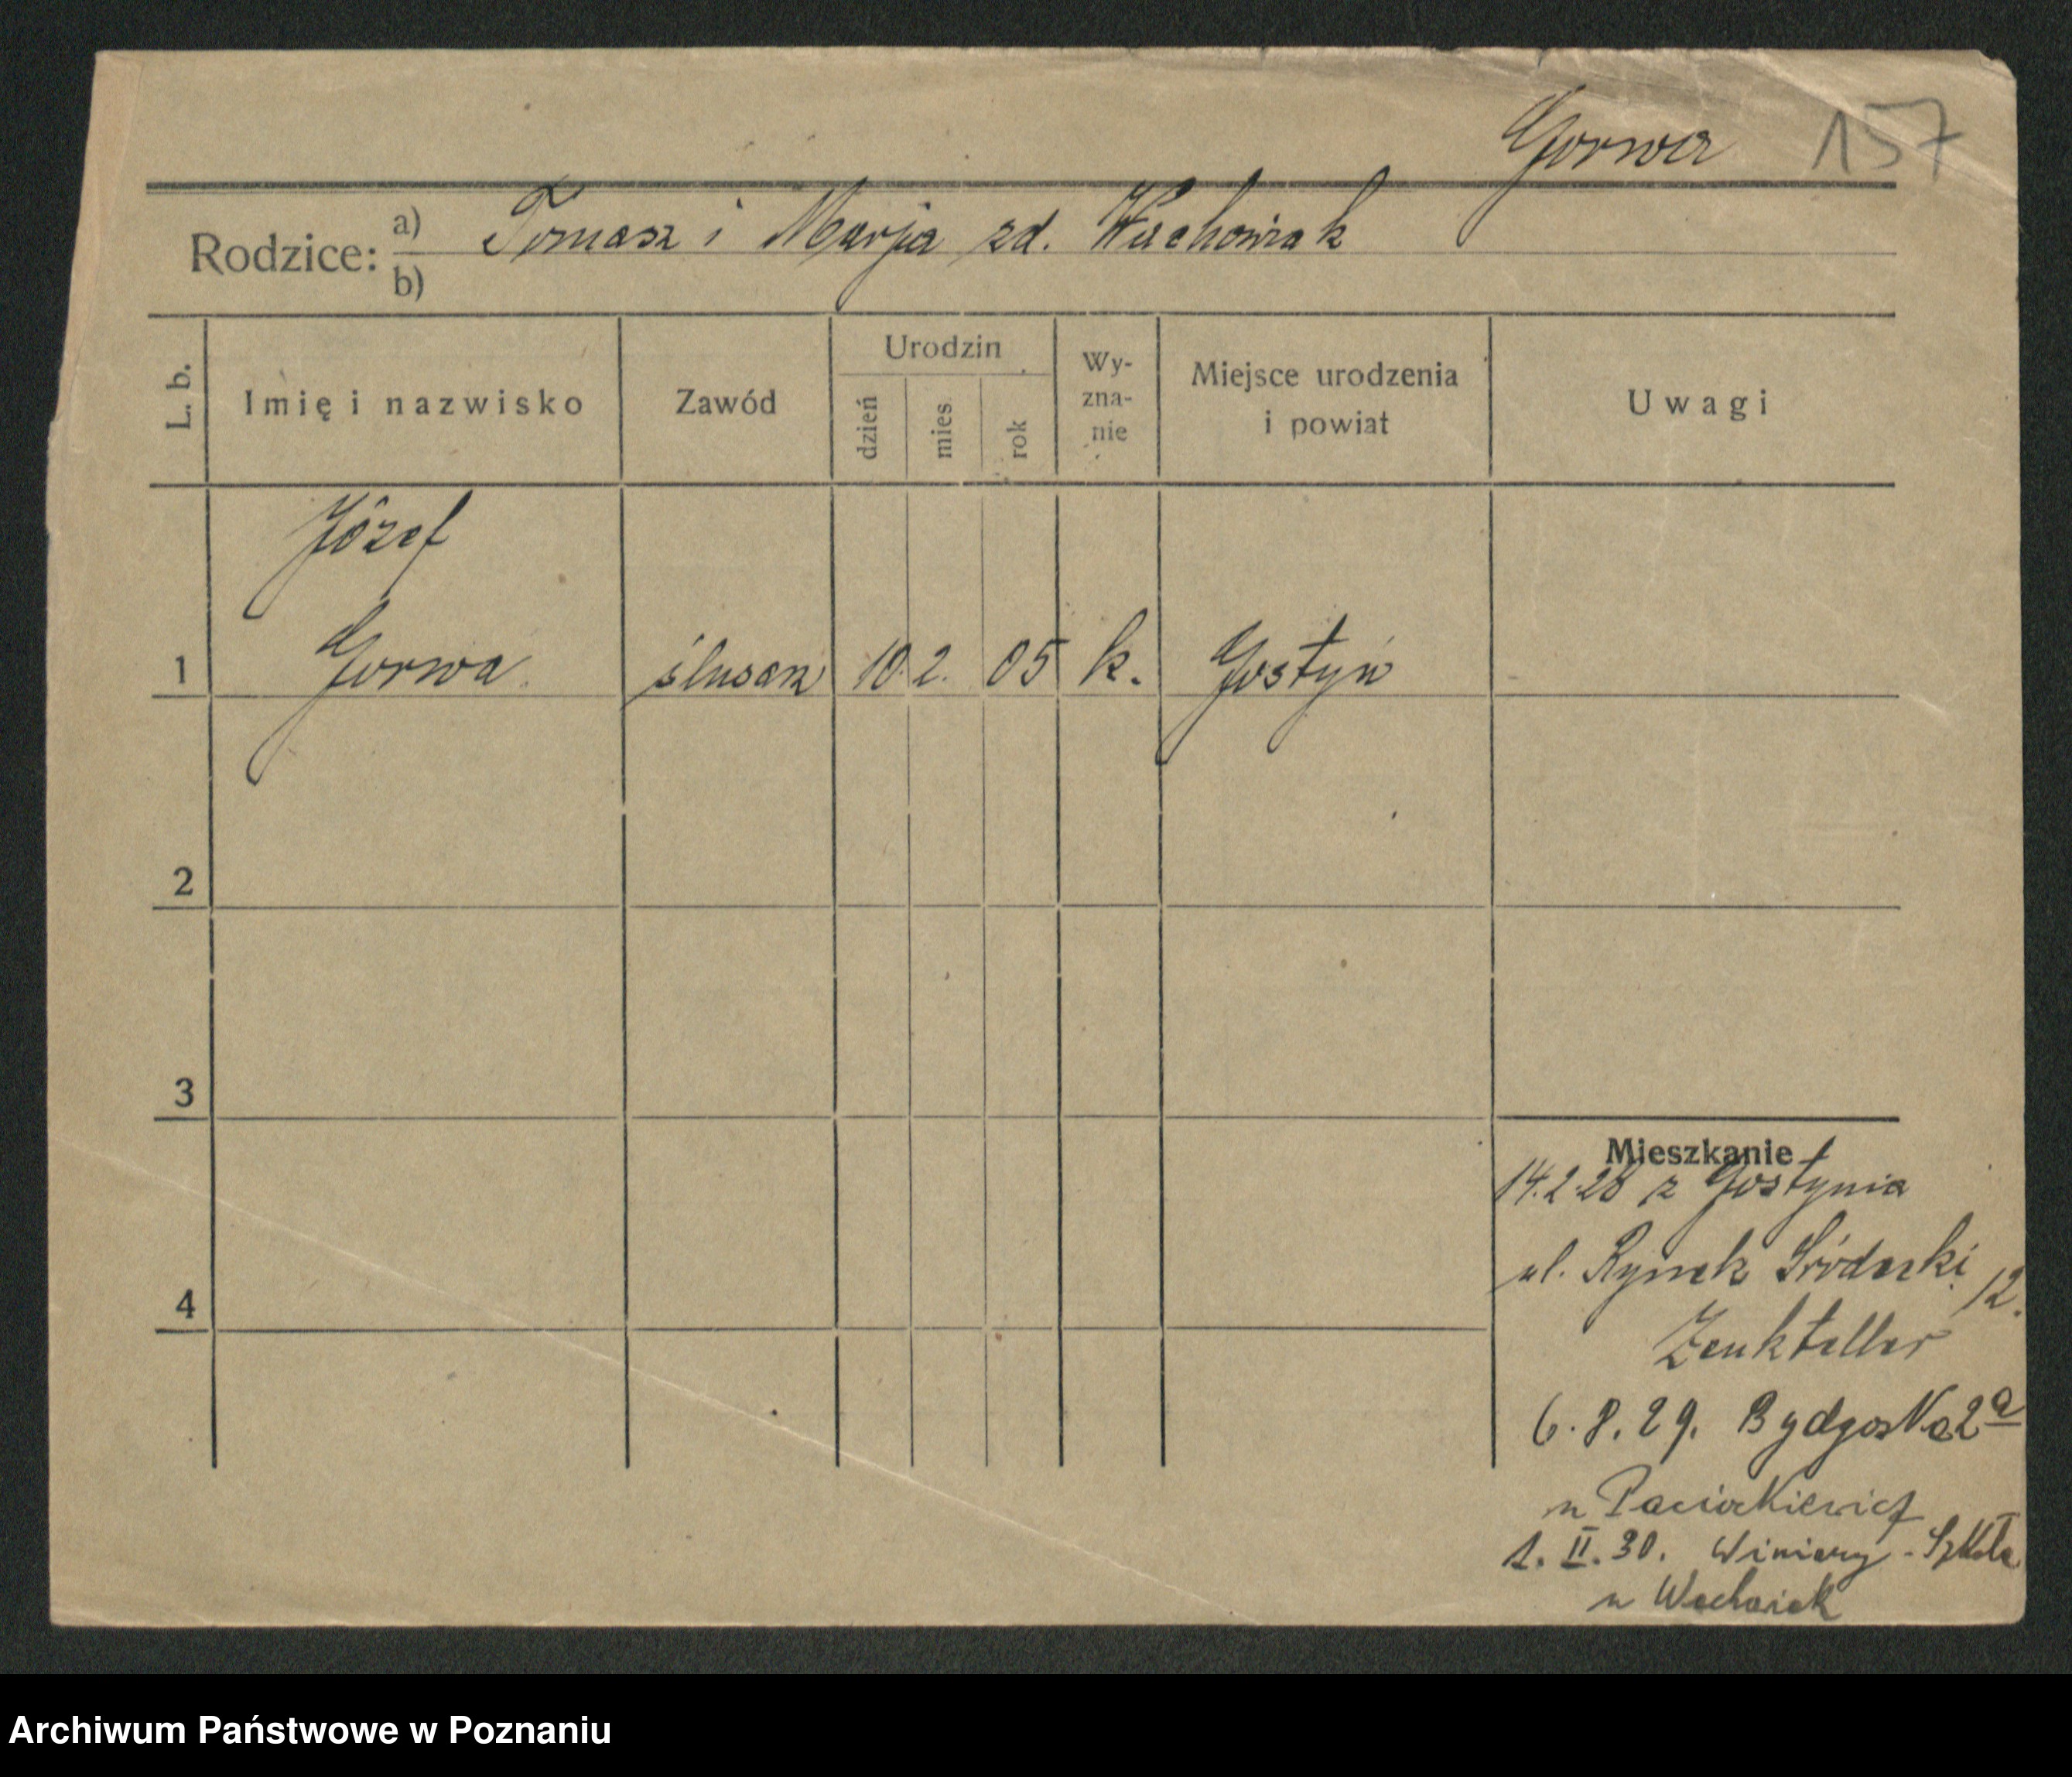 Gorwa 157
Rodzice: a) Tomasz i Marja zd. Wachowiak
b)
L. b. Imię i nazwisko Zawód Urodzin dzień mies rok Wy-zna-nie Miejsce urodzenia i powiat Uwagi
Józef
1 Gorwa ślusarz 10. 2. 05 k. Gostyń
2
3
Mieszkanie
14.2.28 z Gostynia
ul. Rynek Śródecki 12.
4
Zenkteller
6.8.29. Bydgoska 2a
u Paciorkiewicz
1. II. 30. Winiary - Szkoła
u Wachowiak
Archiwum Państwowe w Poznaniu